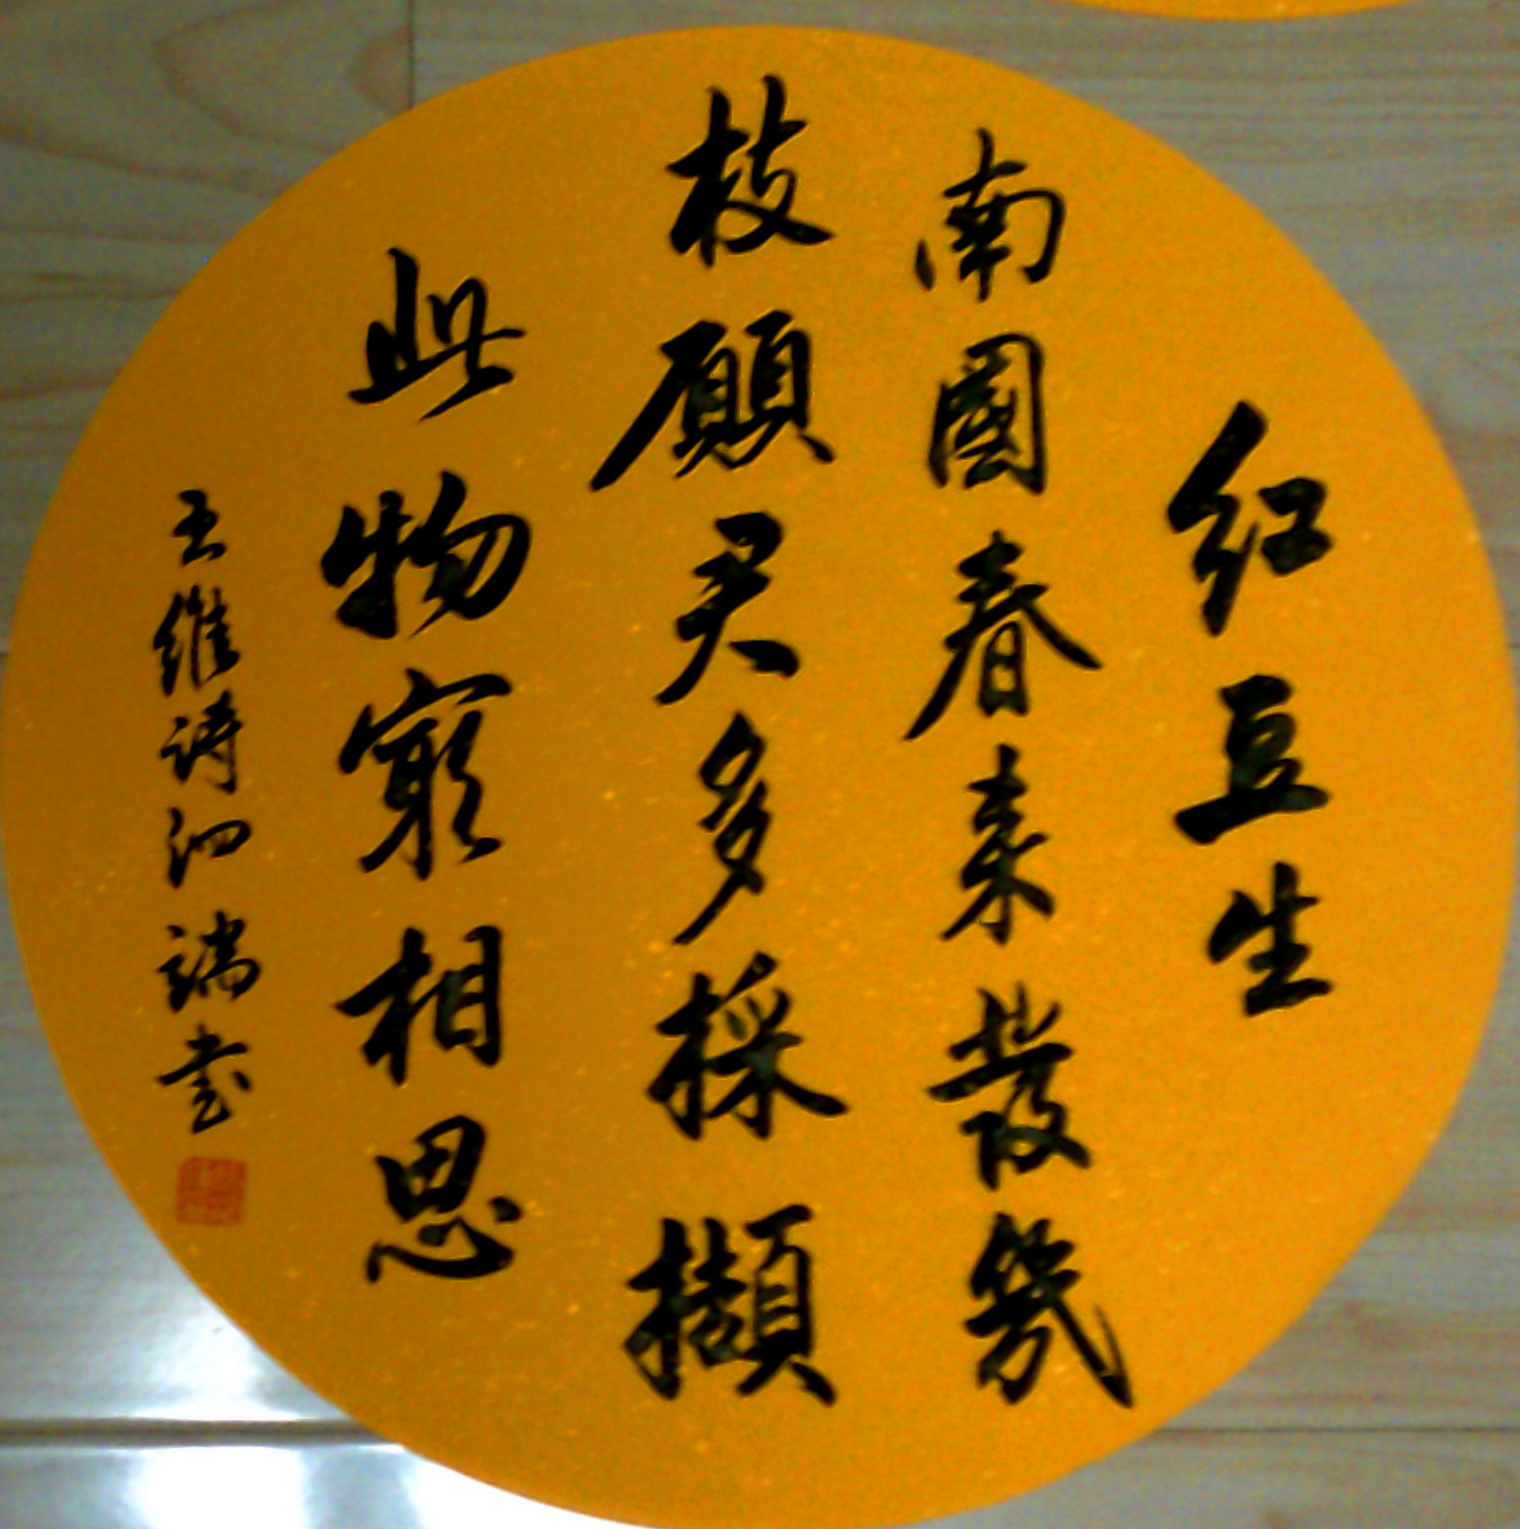 红豆生
南國春来發幾
枝願君多採擷
此物最相思
王維詩端書